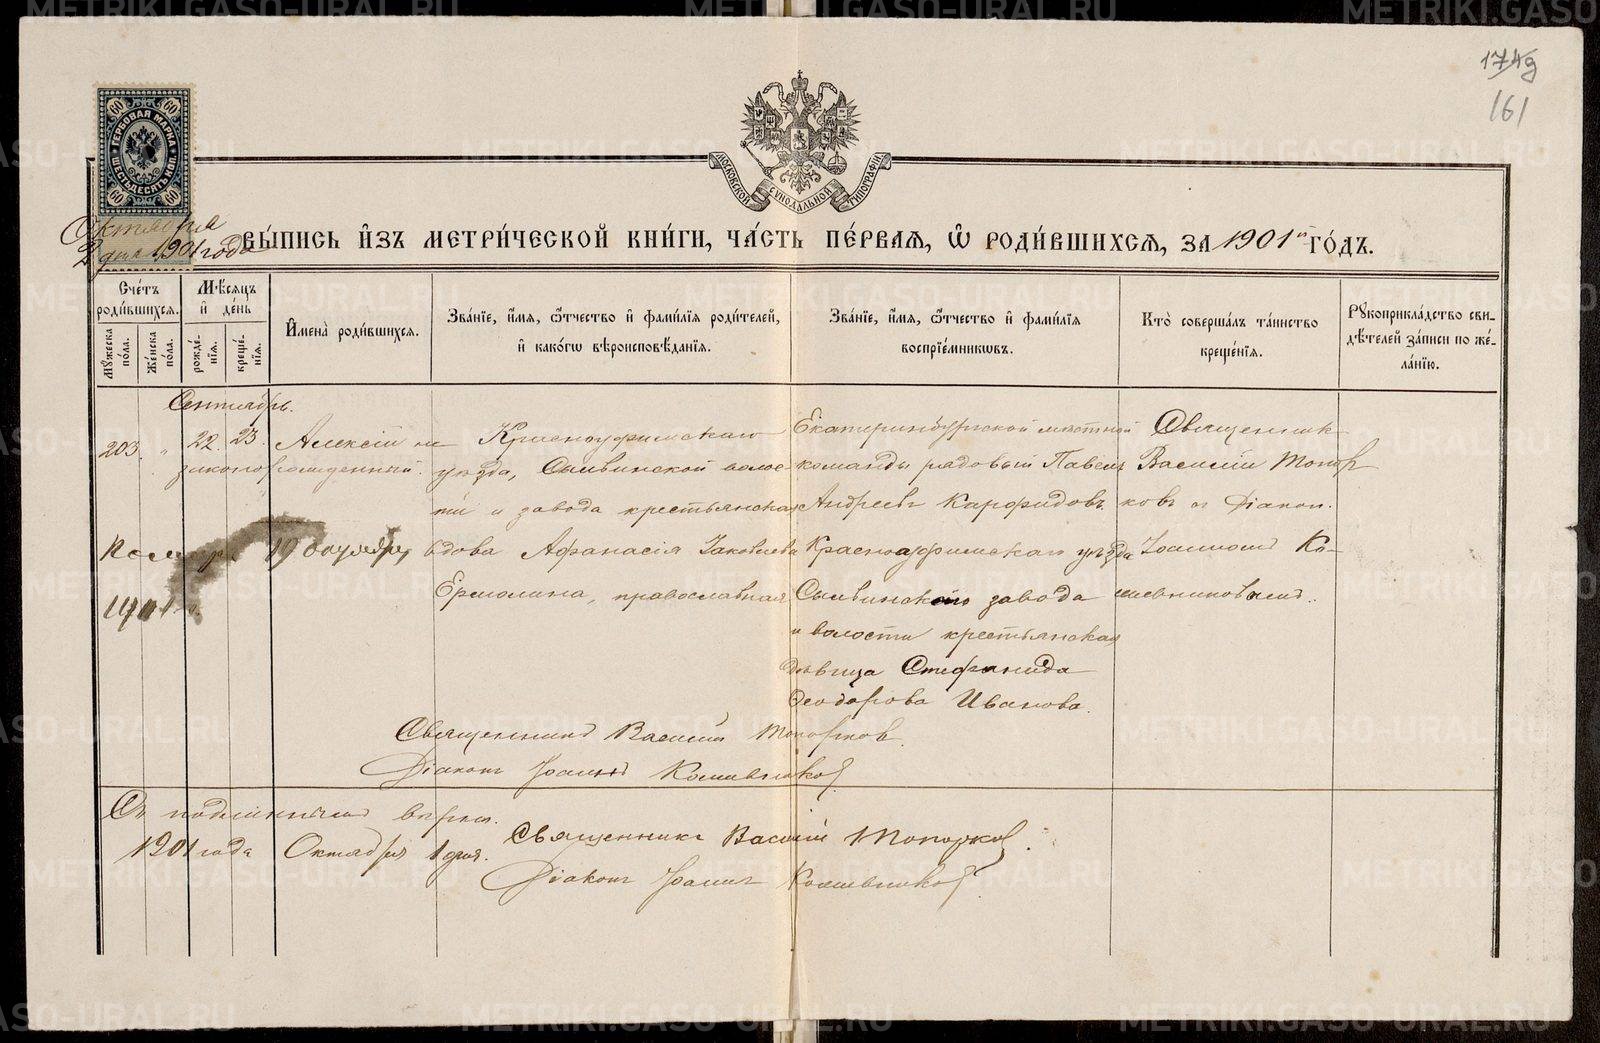 1749
161
60 60
ГЕРБОВАЯ МАРКА
ШЕСТЬДЕСЯТЪ КОП.
60 60
МОСКОВСКОЙ СѴНОДАЛЬНОЙ ТИПОГРАФІИ
Октября
2 дня 1901 года
ВЫ́ПИСЬ И҆ЗЪ МЕТРИ́ЧЕСКОЙ КНИ́ГИ, ЧА́СТЬ ПЕ́РВАѦ, Ѽ РОДИ́ВШИХСѦ, ЗА 1901й ГО́ДЪ.
Сче́тъ роди́вшихсѧ.
Мꙋжеска по́ла.
Же́нска по́ла.
Мѣ́сѧцъ и҆ де́нь
рожде́нїѧ.
креще́нїѧ.
И҆мена̀ роди́вшихсѧ.
Зва́нїе, и҆́мѧ, ѻ҆́тчество и҆ фами́лїѧ роди́телей,
и҆ како́гѡ вѣроисповѣ́данїѧ.
Зва́нїе, и҆́мѧ, ѻ҆́тчество и҆ фами́лїѧ
воспрїе́мникѡвъ.
Кто̀ соверша́лъ та́инство
креще́нїѧ.
Рꙋкоприкла́дство сви-
дѣ́телей за́писи по же-
ла́нїю.
Сентябрь.
203. " 22. 23. Алексій не
законорожденный.
Красноуфимскаго
уѣзда, Сылвинской волос-
ти и завода крестьянская
вдова Афанасія Іаковлева
Ермолина, православная
Екатеринбургской мѣстной
команды рядовый Павелъ
Андреевъ Карфидовъ.
Красноуфимскаго уѣзда
Сылвинскаго завода
и волости крестьянская
дѣвица Стефанида
Ѳеодорова Иванова.
Священник
Василій Топор
ковъ с Діакон.
Іоанномъ Ко-
шевниковымъ.
19 октября,
1901 г.
Священникъ Василій Топорков.
Діаконъ Іоаннъ Кошевников
Съ подлиннымъ вѣрно.
1901 года Октября 1 дня.
Священникъ Василій Топорков.
Діаконъ Іоаннъ Кошевников
METRIKI.GASO-URAL.RU